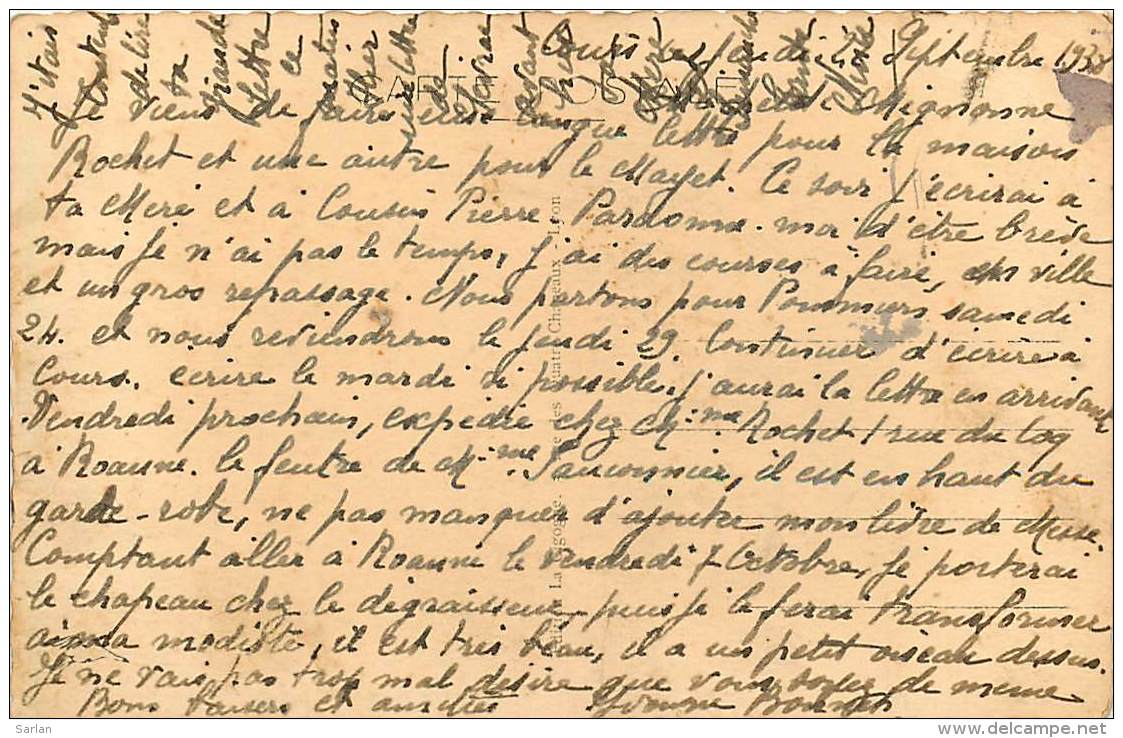 Cours ce Jeudi 22 Septembre 1938
CARTE POSTALE
Mignonne
Je viens de faire une longue lettre pour la maison
Rochet et une autre pour le Mayet. Ce soir j'écrirai à
ta Mère et à Cousin Pierre Pardonne-moi d'être brève
mais je n'ai pas le temps, j'ai des courses à faire, en ville
et un gros repassage. Nous partons pour Pommiers samedi
24. et nous reviendrons le Jeudi 29. Continuer d'écrire à
Cours. écrire le mardi si possible, j'aurai la lettre en arrivant
Vendredi prochain, expédie chez Mme Rochet 1 rue du Lay
à Roanne. le feutre de Mme, il est en haut du
garde-robe, ne pas manquer d'ajouter mon livre de Messe.
Comptant aller à Roanne le Vendredi 7 Octobre, je porterai
le chapeau chez le dégraisseur, puis je le ferai transformer
à ma modiste, il est très beau, il a un petit oiseau dessus.
Je ne vais pas trop mal désire que vous soyez de même
Bons baisers et amitiés Yvonne Bonnet
J'étais
contente
de lire
ta
grande
lettre
ce
matin
Hier
lettre
de
avant
Editeur La Cigogne. Place des Quatre Chapeaux - Lyon
Sarlan
www.delcampe.net